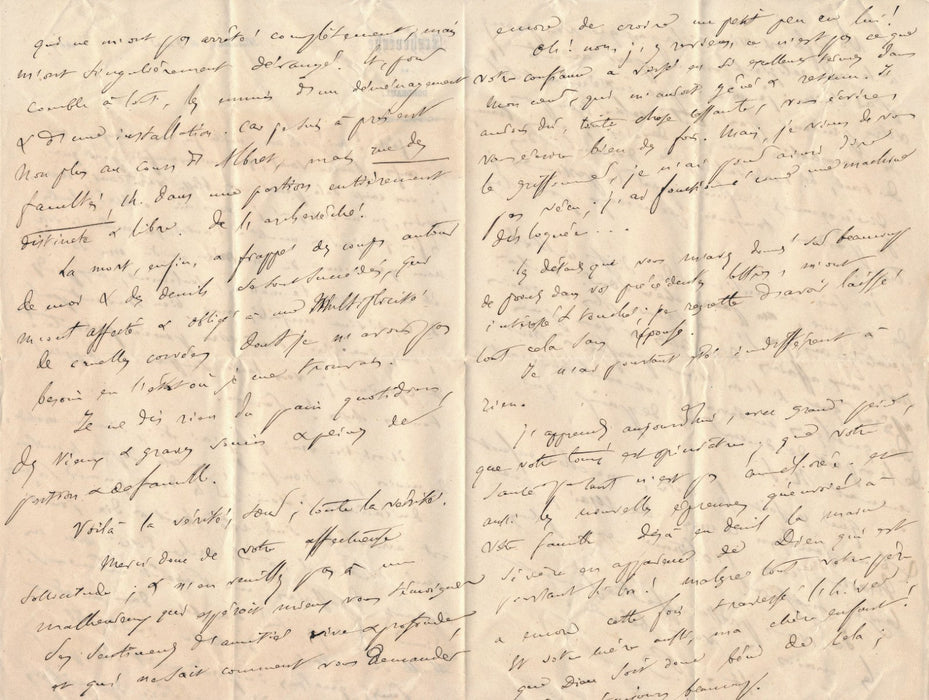 qui ne m'ont pas arrêté complètement, mais
m'ont singulièrement dérangé. Et, pour
comble à tout, les ennuis d'un déménagement
& d'une installation. Car je suis à présent
non plus au cours d'Albret, mais rue des
facultés, 1h. dans une portion entièrement
distincte & libre de l'archevêché.
La mort, enfin, a frappé des coups autour
de moi & des deuils se sont succédés, qui
m'ont affecté & obligé à une multiplicité
de cruelles corvées dont je n'avais pas
besoin en l'état où je me trouvais.
Je ne dis rien du pain quotidien,
des vieux & graves soucis & peines de
position & de famille.
Voilà la vérité, sœur ; toute la vérité.
Merci donc de votre affectueuse
sollicitude ; & n'en veuillez pas à un
malheureux qui espérait mieux vous témoigner
ses sentiments d'amitié vive & profonde
et qui ne sait comment vous demander
encore de croire un petit peu en lui !
Oh ! non, j'y reviens, ce n'est pas ce que
votre confiance a versé en si excellents termes dans
mon cœur, qui m'aurait gêné & retenu. J'
aurais dû, toute chose cessante, vous écrire,
vous écrire bien des fois. Mais, je viens de vous
le griffonner, je n'ai pour ainsi dire
pas vécu ; j'ai fonctionné comme une machine
disloquée . . .
Les détails que vous m'avez donnés sur beaucoup
de points dans vos précédentes lettres, m'ont
intéressé & touché. Je regrette d'avoir laissé
tout cela sans réponse.
Je n'ai pourtant été indifférent à
rien.
J'apprends aujourd'hui, avec grand peine,
que votre toux est opiniâtre, que votre
santé partant n'est pas améliorée. et
aussi les nouvelles épreuves qu'envoie à
votre famille déjà en deuil la main
sévère en apparence de Dieu qui est
pourtant si bon ! malgré tout votre père
a encore cette fois traversé l'hiver !
Et votre mère aussi, ma chère enfant !
que Dieu soit donc béni de cela ;
toujours beaucoup